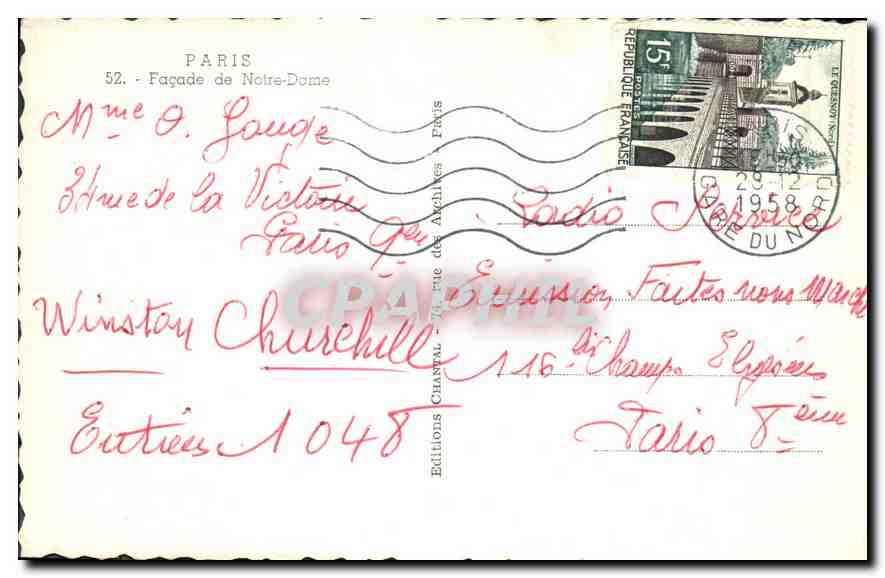 PARIS
52. - Façade de Notre-Dame
Mme O. Gouge
34 rue de la Victoire
Paris 9em
Winston Churchill
Entiers 1048
Editions CHANTAL - 74, rue des Archives - Paris
CPAPHIL
15F
POSTES
REPUBLIQUE FRANÇAISE
LE QUESNOY (Nord)
28-12
1958
GARE DU NORD
Radio Service
Emission Faites nous Marche
116 bis Champs Elysées
Paris 8ème